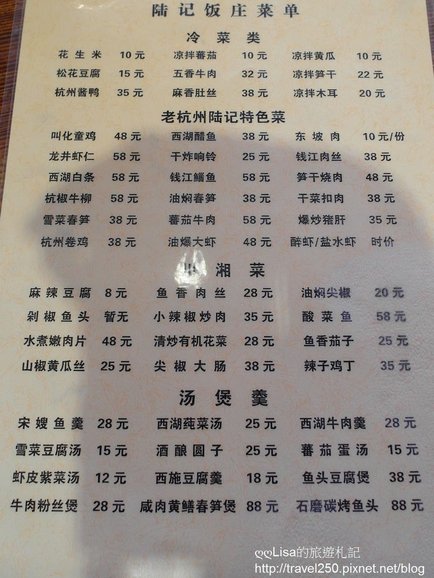 陆记饭庄菜单
冷菜类
花生米 10元 凉拌蕃茄 10元 凉拌黄瓜 10元
松花豆腐 15元 五香牛肉 32元 凉拌笋干 22元
杭州酱鸭 35元 麻香肚丝 38元 凉拌木耳 20元
老杭州陆记特色菜
叫化童鸡 48元 西湖醋鱼 38元 东坡肉 10元/份
龙井虾仁 58元 干炸响铃 25元 钱江肉丝 38元
西湖白条 58元 钱江鳝鱼 58元 笋干烧肉 48元
杭椒牛柳 58元 油焖春笋 38元 干菜扣肉 38元
雪菜春笋 38元 蕃茄牛肉 58元 爆炒猪肝 35元
杭州卷鸡 38元 油爆大虾 48元 醉虾/盐水虾 时价
湘菜
麻辣豆腐 8元 鱼香肉丝 28元 油焖尖椒 20元
剁椒鱼头 暂无 小辣椒炒肉 35元 酸菜鱼 58元
水煮嫩肉片 48元 清炒有机花菜 28元 鱼香茄子 25元
山椒黄瓜丝 25元 尖椒大肠 38元 辣子鸡丁 35元
汤煲羹
宋嫂鱼羹 28元 西湖莼菜汤 25元 西湖牛肉羹 28元
雪菜豆腐汤 15元 酒酿圆子 25元 蕃茄蛋汤 15元
虾皮紫菜汤 12元 西施豆腐羹 18元 鱼头豆腐煲 38元
牛肉粉丝煲 28元 咸肉黄鳝春笋煲 88元 石磨碳烤鱼头 88元
ღღLisa的旅遊札記
http://travel250.pixnet.net/blog